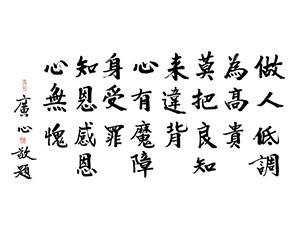 做人低調
為高貴
莫把良知
来違背
心有魔障
身受罪
知恩感恩
心無愧
廣心敬題